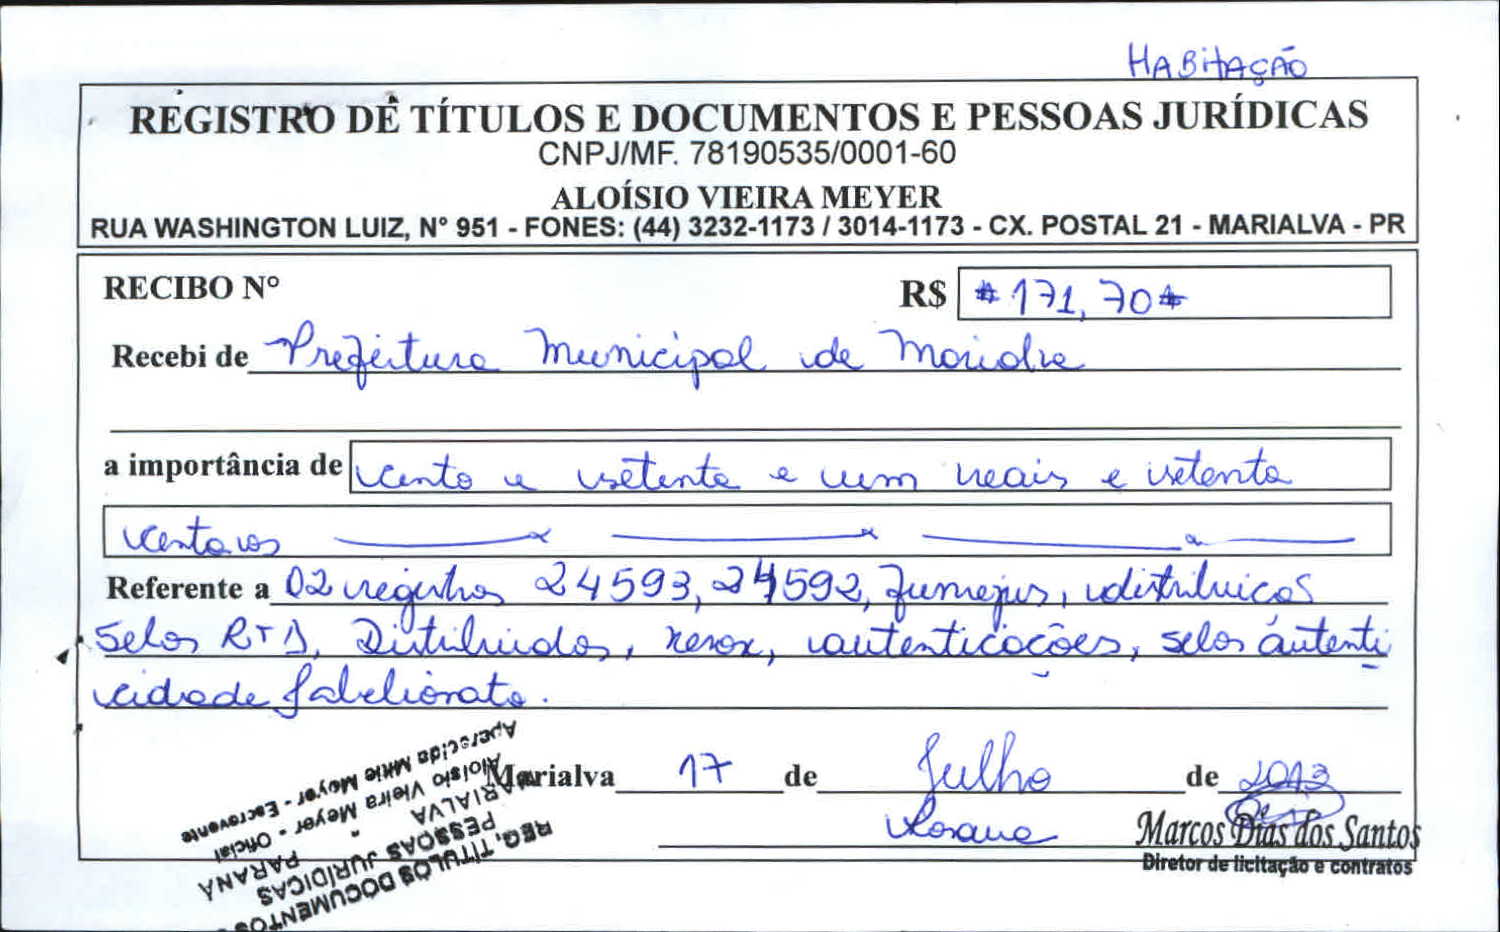 HABITAÇÃO
REGISTRO DE TÍTULOS E DOCUMENTOS E PESSOAS JURÍDICAS
CNPJ/MF. 78190535/0001-60
ALOÍSIO VIEIRA MEYER
RUA WASHINGTON LUIZ, Nº 951 - FONES: (44) 3232-1173 / 3014-1173 - CX. POSTAL 21 - MARIALVA - PR
RECIBO Nº R$ # 171,70 #
Recebi de Prefeitura Municipal de Marialva
a importância de cento e setenta e um reais e setenta
centavos
Referente a 02 registros 24593, 24592, Funrejus, distribuição
Selos RTD, Distribuidor, xerox, autenticações, selos autenti
cidade Tabelionato.
Marialva 17 de Julho de 2013
Rosana
Marcos Dias dos Santos
Diretor de licitação e contratos
REG. TÍTULOS DOCUMENTOS
PESSOAS JURÍDICAS
MARIALVA - PARANÁ
Aloísio Vieira Meyer - Oficial
Aparecida Mitie Meyer - Escrevente